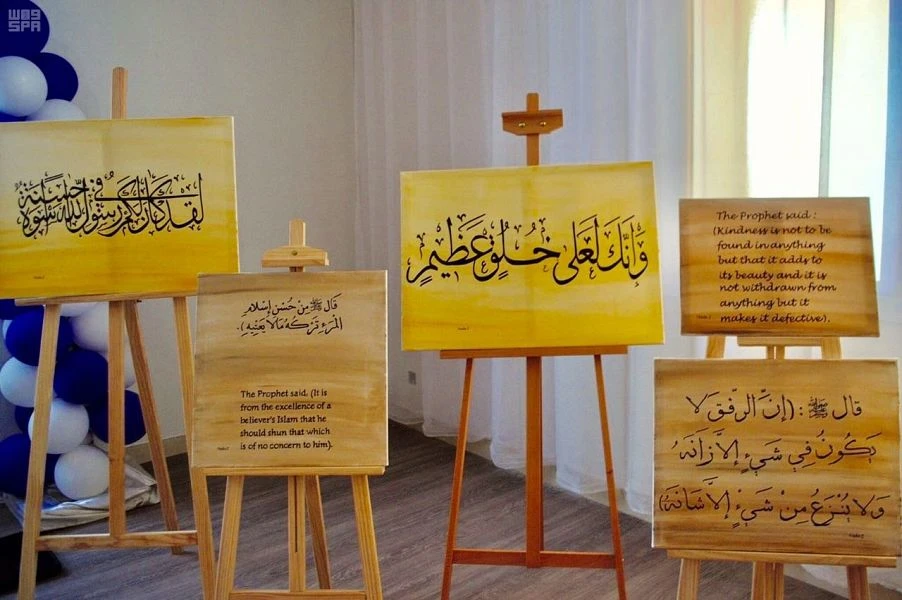 SPA
لقد كان لكم في رسول الله أسوة حسنة
قَالَ ﷺ مِنْ حُسْنِ إِسْلَامِ
المَرْءِ تَرْكُهُ مَا لَا يَعْنِيهِ).
The Prophet said, (It is
from the excellence of a
believer's Islam that he
should shun that which
is of no concern to him).
وَإِنَّكَ لَعَلَى خُلُقٍ عَظِيمٍ
The Prophet said :
(Kindness is not to be
found in anything
but that it adds to
its beauty and it is
not withdrawn from
anything but it
makes it defective).
قال ﷺ : (إنَّ الرِّفقَ لا
يَكُونُ فِي شَيءٍ إلاَّ زَانَهُ
وَلا يُنْزَعُ مِنْ شَيءٍ إلاَّ شَانَهُ)